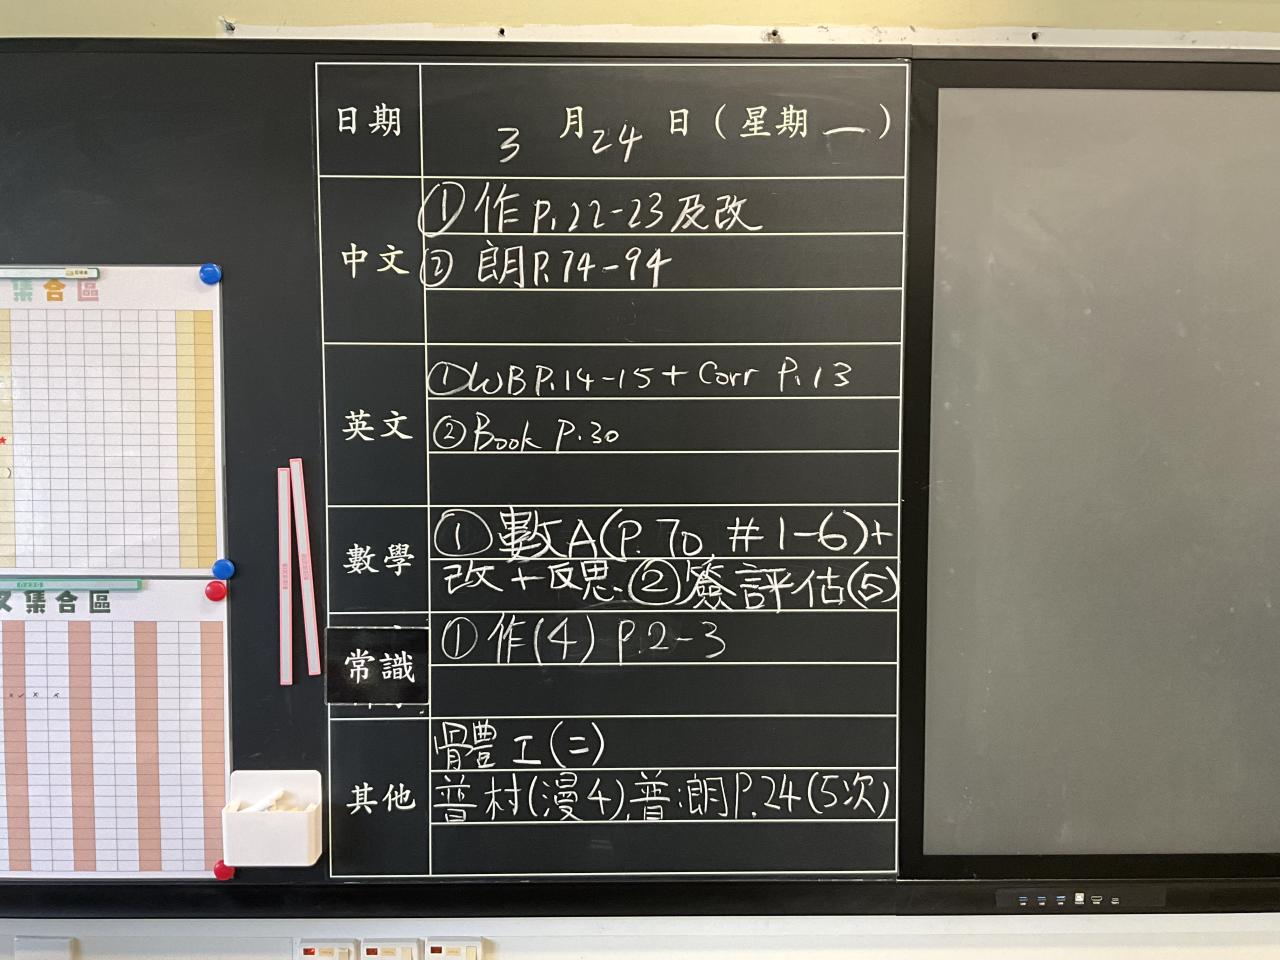 日期 3月24日(星期一)
中文
①作P.22-23及改
②朗P.74-94
英文
①WB P.14-15+Corr P.13
②Book P.30
數學
①數A(P.70 #1-6)+
改+反思.②簽評估(5)
常識
①作(4) P.2-3
其他
體工(二)
普村(漫4),普朗P.24(5次)
集合區
集合區